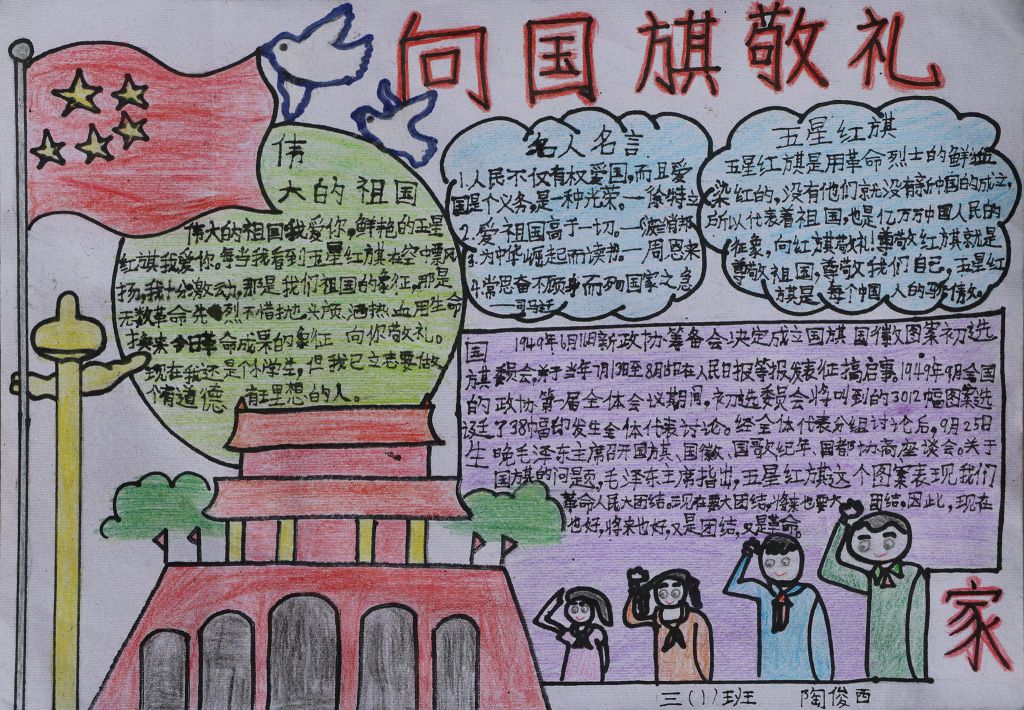 向国旗敬礼
伟
大的祖国
伟大的祖国我爱你,鲜艳的五星
红旗我爱你。每当我看到五星红旗在空中飘
扬,我十分激动,那是我们祖国的象征,那是
无数革命先烈不惜抛头颅洒热血用生命
换来 命成果的象征 向你敬礼。
现在我还是个小学生,但我已立志要做
有道德 有理想的人。
名人名言
1.人民不仅有权爱国,而且爱
国是个义务,是一种光荣。—徐特立
2.爱祖国高于一切。—
3.为中华崛起而读书。—周恩来
4.常思奋不顾身而殉国家之急
—司马迁
五星红旗
五星红旗是用革命烈士的鲜血
染红的,没有他们就没有新中国的成立,
所以代表着祖国,也是亿万万中国人民的
征象,向红旗敬礼!尊敬红旗就是
尊敬祖国,尊敬我们自己,五星红
旗是每个中国人的骄傲。
国旗的诞生
1949年6月16日新政协筹备会决定成立国旗 国徽图案初选
委员会,于当年7月13日至8月 在人民日报等报发表征搞启事。1949年9月全国
政协第一届全体会议期间,初选委员会将 到的3012幅图案选
了38幅印发全体代表讨论。经全体代表分组讨论后,9月25日
晚毛泽东主席召开国旗、国徽、国歌纪年、国都协商座谈会。关于
国旗的问题,毛泽东主席指出,五星红旗这个图案表现我们
革命人民大团结。现在要大团结,将来也要大团结。因此,现在
也好,将来也好,又是团结,又是革命。
家
三(1)班 陶俊西